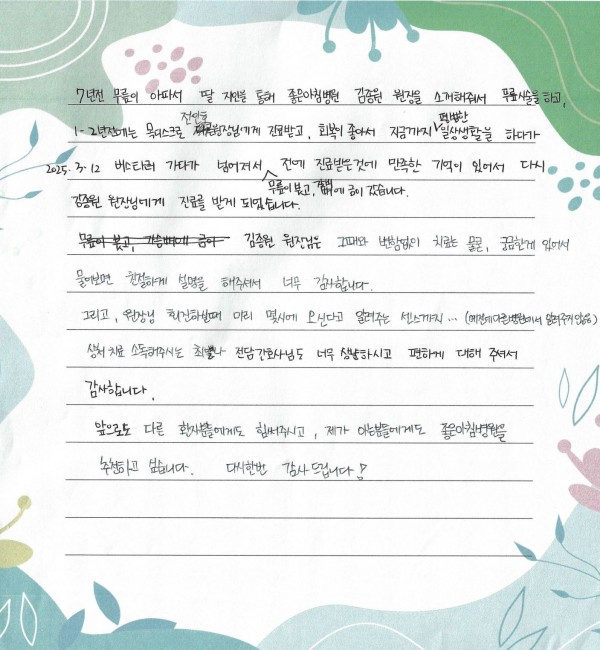 7년전 무릎이 아파서 딸 지인을 통해 좋은아침병원 김종원 원장을 소개해줘서 무릎시술을 하고,
전인호 평범한
1-2년전에는 목디스크로 원장님에게 진료받고, 회복이 좋아서 지금까지 일상생활을 하다가
2025. 3. 12 버스타러 가다가 넘어져서 전에 진료받은것에 만족한 기억이 있어서 다시
무릎이 붓고, 뼈에 금이 갔습니다.
김종원 원장님에게 진료를 받게 되었습니다.
무릎이 붓고, 가슴뼈에 금이 김종원 원장님은 그때와 변함없이 치료는 물론, 궁금한게 있어서
물어보면 친절하게 설명을 해주셔서 너무 감사합니다.
그리고, 원장님 회진하실때 미리 몇시에 오신다고 알려주는 센스까지 ... (예전에 다른병원에서 알려주지 않음)
상처 치료 소독해주시는 최별나 전담간호사님도 너무 싹싹하시고 편하게 대해 주셔서
감사합니다.
앞으로도 다른 환자분들에게도 힘써주시고, 제가 아는분들에게도 좋은아침병원을
추천하고 싶습니다. 다시한번 감사드립니다!